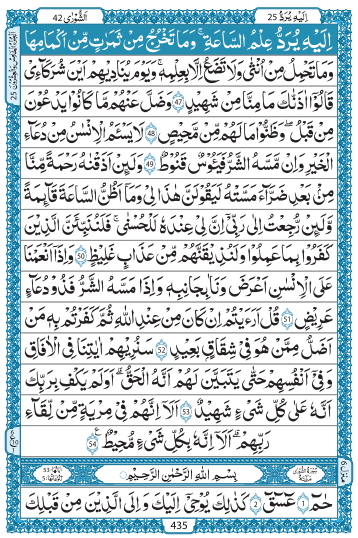 اِلَيْهِ يُرَدُّ 25
اَلشُّوْرٰى 42
اِلَيْهِ يُرَدُّ عِلْمُ السَّاعَةِ ؕ وَمَا تَخْرُجُ مِنْ ثَمَرٰتٍ مِّنْ اَكْمَامِهَا
وَمَا تَحْمِلُ مِنْ اُنْثٰى وَلَا تَضَعُ اِلَّا بِعِلْمِهٖ ؕ وَيَوْمَ يُنَادِيْهِمْ اَيْنَ شُرَكَآءِيْ ۙ
قَالُوْٓا اٰذَنّٰكَ ۙ مَا مِنَّا مِنْ شَهِيْدٍ ۚ 47 وَضَلَّ عَنْهُمْ مَّا كَانُوْا يَدْعُوْنَ
مِنْ قَبْلُ وَظَنُّوْا مَا لَهُمْ مِّنْ مَّحِيْصٍ 48 لَا يَسْـَٔمُ الْاِنْسٰنُ مِنْ دُعَآءِ
الْخَيْرِ ۫ وَاِنْ مَّسَّهُ الشَّرُّ فَيَـُٔوْسٌ قَنُوْطٌ 49 وَلَئِنْ اَذَقْنٰهُ رَحْمَةً مِّنَّا
مِنْۢ بَعْدِ ضَرَّآءَ مَسَّتْهُ لَيَقُوْلَنَّ هٰذَا لِيْ ۙ وَمَآ اَظُنُّ السَّاعَةَ قَآئِمَةً ۙ
وَّلَئِنْ رُّجِعْتُ اِلٰى رَبِّيْٓ اِنَّ لِيْ عِنْدَهٗ لَلْحُسْنٰى ۚ فَلَنُنَبِّئَنَّ الَّذِيْنَ
كَفَرُوْا بِمَا عَمِلُوْا ۫ وَلَنُذِيْقَنَّهُمْ مِّنْ عَذَابٍ غَلِيْظٍ 50 وَاِذَآ اَنْعَمْنَا
عَلَى الْاِنْسٰنِ اَعْرَضَ وَنَاٰ بِجَانِبِهٖ ۚ وَاِذَا مَسَّهُ الشَّرُّ فَذُوْ دُعَآءٍ
عَرِيْضٍ 51 قُلْ اَرَءَيْتُمْ اِنْ كَانَ مِنْ عِنْدِ اللّٰهِ ثُمَّ كَفَرْتُمْ بِهٖ مَنْ
اَضَلُّ مِمَّنْ هُوَ فِيْ شِقَاقٍۭ بَعِيْدٍ 52 سَنُرِيْهِمْ اٰيٰتِنَا فِي الْاٰفَاقِ
وَفِيْٓ اَنْفُسِهِمْ حَتّٰى يَتَبَيَّنَ لَهُمْ اَنَّهُ الْحَقُّ ؕ اَوَلَمْ يَكْفِ بِرَبِّكَ
اَنَّهٗ عَلٰى كُلِّ شَيْءٍ شَهِيْدٌ 53 اَلَآ اِنَّهُمْ فِيْ مِرْيَةٍ مِّنْ لِّقَآءِ
رَبِّهِمْ ؕ اَلَآ اِنَّهٗ بِكُلِّ شَيْءٍ مُّحِيْطٌ 54
بِسْمِ اللّٰهِ الرَّحْمٰنِ الرَّحِيْمِ
حٰمٓ 1 عٓسٓقٓ 2 كَذٰلِكَ يُوْحِيْٓ اِلَيْكَ وَاِلَى الَّذِيْنَ مِنْ قَبْلِكَ ۙ
435